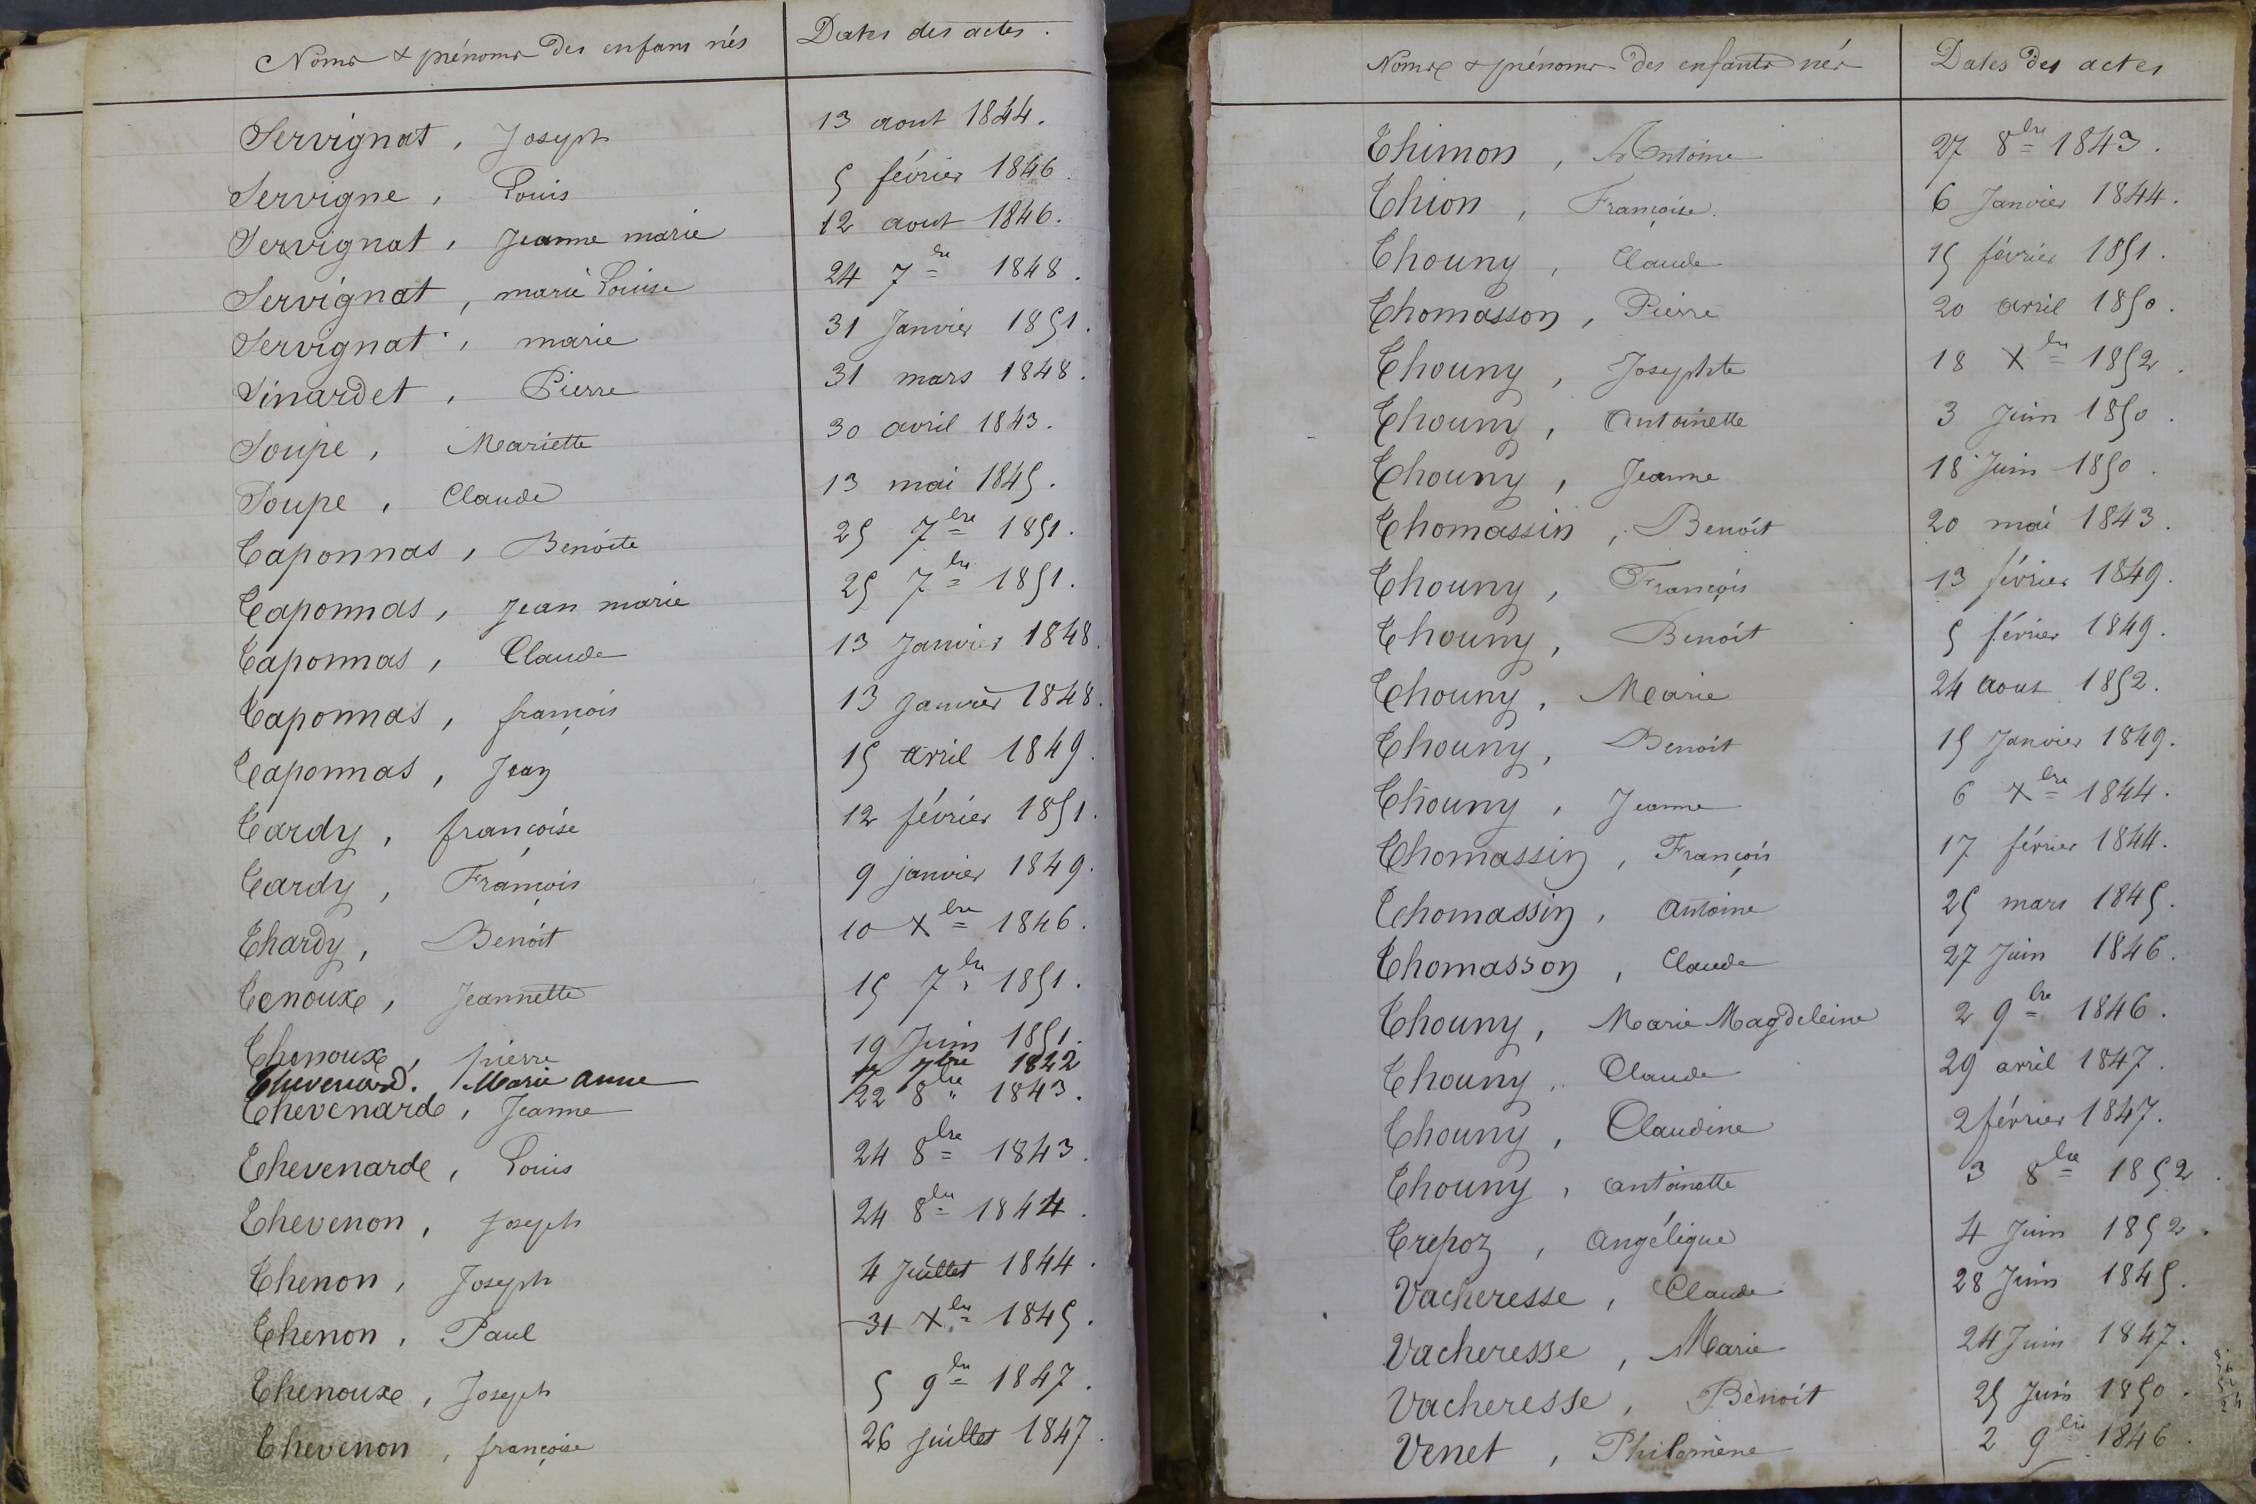 Noms & prénoms des enfans nés Dates des actes.
Servignat, Joseph 13 aout 1844.
Servigne, Louis 5 février 1846.
Servignat, Jeanne marie 12 aout 1846.
Servignat, marie Louise 24 7bre 1848.
Servignat, marie 31 Janvier 1851.
Sinardet, Pierre 31 mars 1848.
Soupe, Mariette 30 avril 1843.
Soupe, Claude 13 mai 1845.
Taponnas, Benoite 25 7bre 1851.
Taponnas, Jean marie 25 7bre 1851.
Taponnas, Claude 13 Janvier 1848.
Taponnas, françois 13 Janvier 1848.
Taponnas, Jean 15 avril 1849.
Tardy, françoise 12 février 1851.
Tardy, François 9 janvier 1849.
Thardy, Benoit 10 Xbre 1846.
Tenoux, Jeannette 15 7bre 1851.
Thenoux, pierre 19 Juin 1851.
Thevenard. Marie anne 7bre 1842
Thevenard, Jeanne 22 8bre 1843.
Thevenarde, Louis 24 8bre 1843.
Thevenon, Joseph 24 8bre 1844.
Thenon, Joseph 4 Juillet 1844.
Thenon, Paul 31 Xbre 1845.
Thenoux, Joseph 5 9bre 1847.
Thevenon, françoise 26 juillet 1847.
Noms & prénoms des enfants nés Dates des actes
Thimon, Antoine 27 8bre 1843.
Thion, Françoise. 6 Janvier 1844.
Thouny, Claude 15 février 1851.
Thomasson, Pierre 20 avril 1850.
Thouny, Josephte 18 Xbre 1852.
Thouny, Antoinette 3 Juin 1850.
Thouny, Jeanne 18 Juin 1850.
Thomassin, Benoit 20 mai 1843.
Thouny, François 13 février 1849.
Thouny, Benoit 5 février 1849.
Thouny, Marie 24 aout 1852.
Thouny, Benoit 15 Janvier 1849.
Thouny, Jeanne 6 Xbre 1844.
Thomassin, François 17 février 1844.
Thomassin, Antoine 25 mars 1845.
Thomasson, Claude 27 Juin 1846.
Thouny, Marie Magdeleine 2 9bre 1846.
Thouny, Claude 29 avril 1847.
Thouny, Claudine 2 février 1847.
Thouny, antoinette 3 8bre 1852.
Trepoz, Angélique 4 Juin 1852.
Vacheresse, Claude 28 Juin 1845.
Vacheresse, Marie 24 Juin 1847.
Vacheresse, Benoit 25 Juin 1850.
Venet, Philomène 2 9bre 1846.